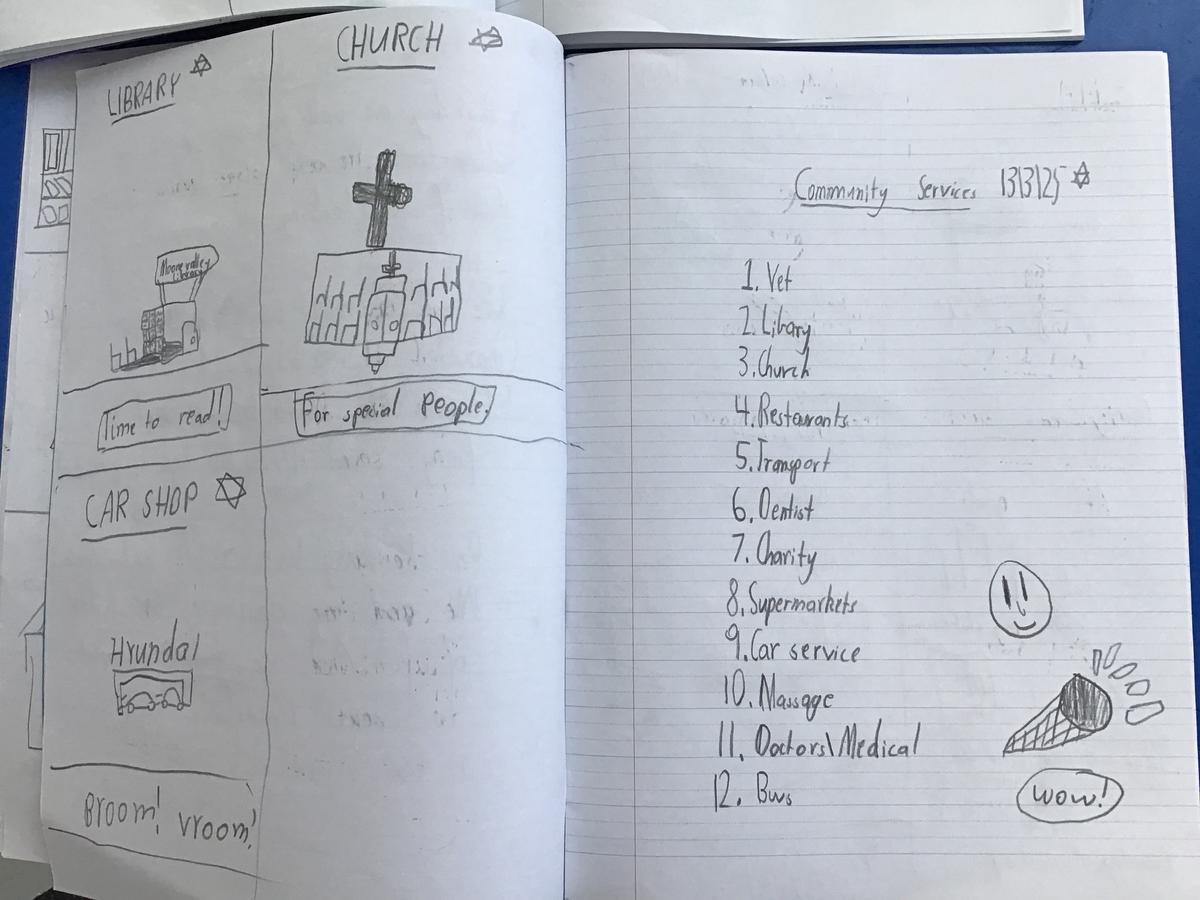 LIBRARY
Time to read!
CHURCH
For special People.
CAR SHOP
Hyundai
Broom! vroom!
Community Services 13\3\25
1. Vet
2. Library
3. Church
4. Restaurants
5. Transport
6. Dentist
7. Charity
8. Supermarkets
9. Car service
10. Massage
11. Doctors\Medical
12. Bus
wow!